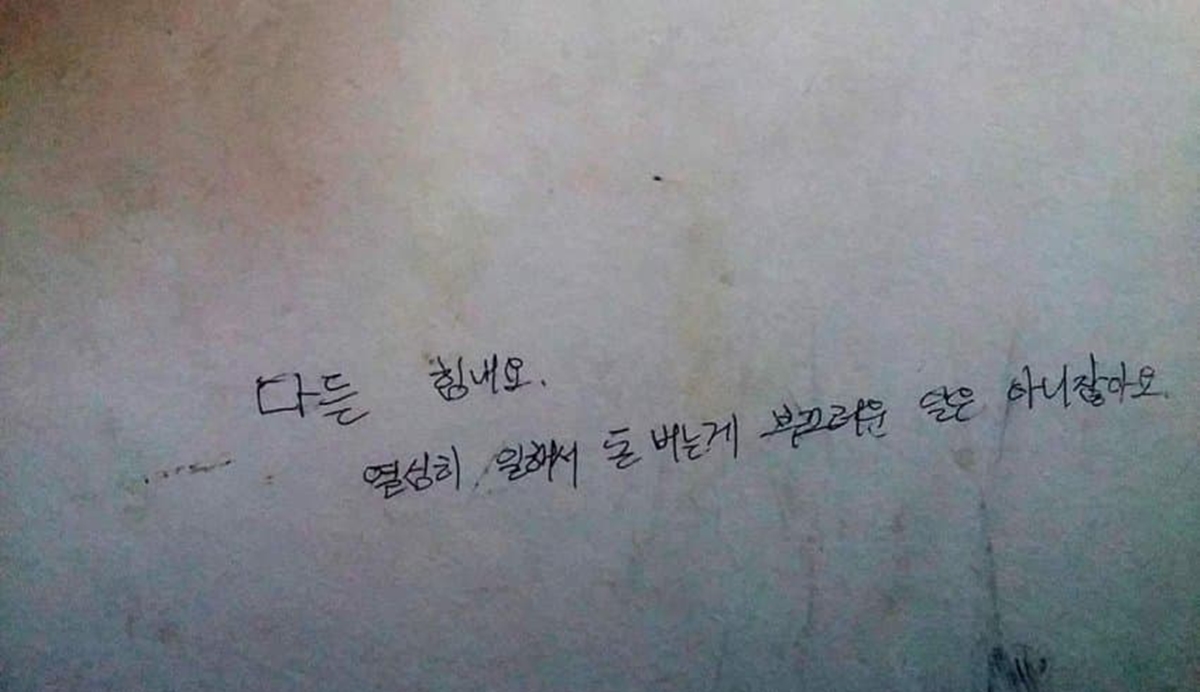 다들 힘내요.
열심히 일해서 돈 버는게 부끄러운 일은 아니잖아요.